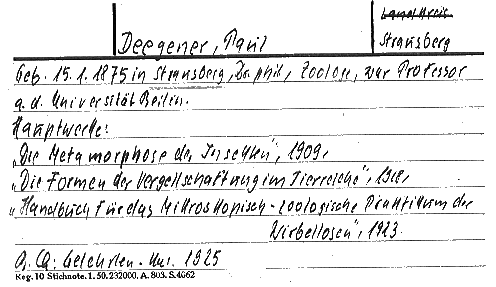 Landkreis
Deegener, Paul
Strausberg
Geb. 15.1.1875 in Strausberg, Dr. phil., Zoologe, war Professor
a. d. Universität Berlin.
Hauptwerke:
„Die Metamorphose der Insekten", 1909,
„Die Formen der Vergesellschaftung im Tierreiche", 1918,
„Handbuch für das Mikroskopisch-zoologische Praktikum der
Wirbellosen", 1923.
Gelehrten- 1925
Reg. 10 Stichnote. 1. 50. 232000. A. 803. S. 4662